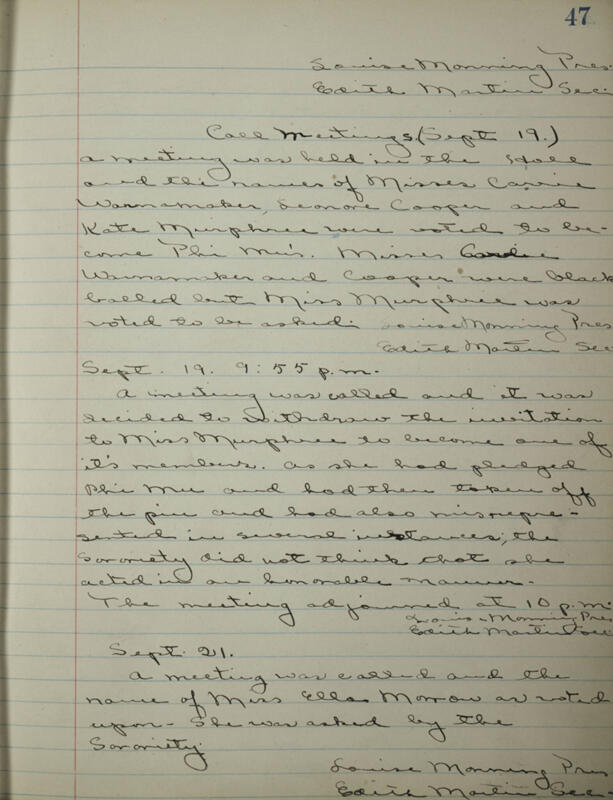 47
Louise Monning Pres.
Edith Martin Sec.
Call Meetings (Sept 19.)
A meeting was held in the Hall
and the names of Misses Carrie
Wannamaker, Leonore Cooper and
Kate Murphree were voted to be-
come Phi Mu's. Misses Carrie
Wannamaker and Cooper were black
balled but Miss Murphree was
voted to be asked. Louise Monning Pres
Edith Martin Sec
Sept. 19. 9:55 p.m.
A meeting was called and it was
decided to withdraw the invitation
to Miss Murphree to become one of
it's members. As she had pledged
Phi Mu and had then taken off
the pin and had also misrepre-
sented in several instances, the
Sorority did not think that she
acted in an honorable manner.
The meeting adjourned at 10 p.m.
Louise Monning Pres
Edith Martin Sec
Sept. 21.
A meeting was called and the
name of Miss Ella Morrow as voted
upon - She was asked by the
Sorority.
Louise Monning Pres
Edith Martin Sec.